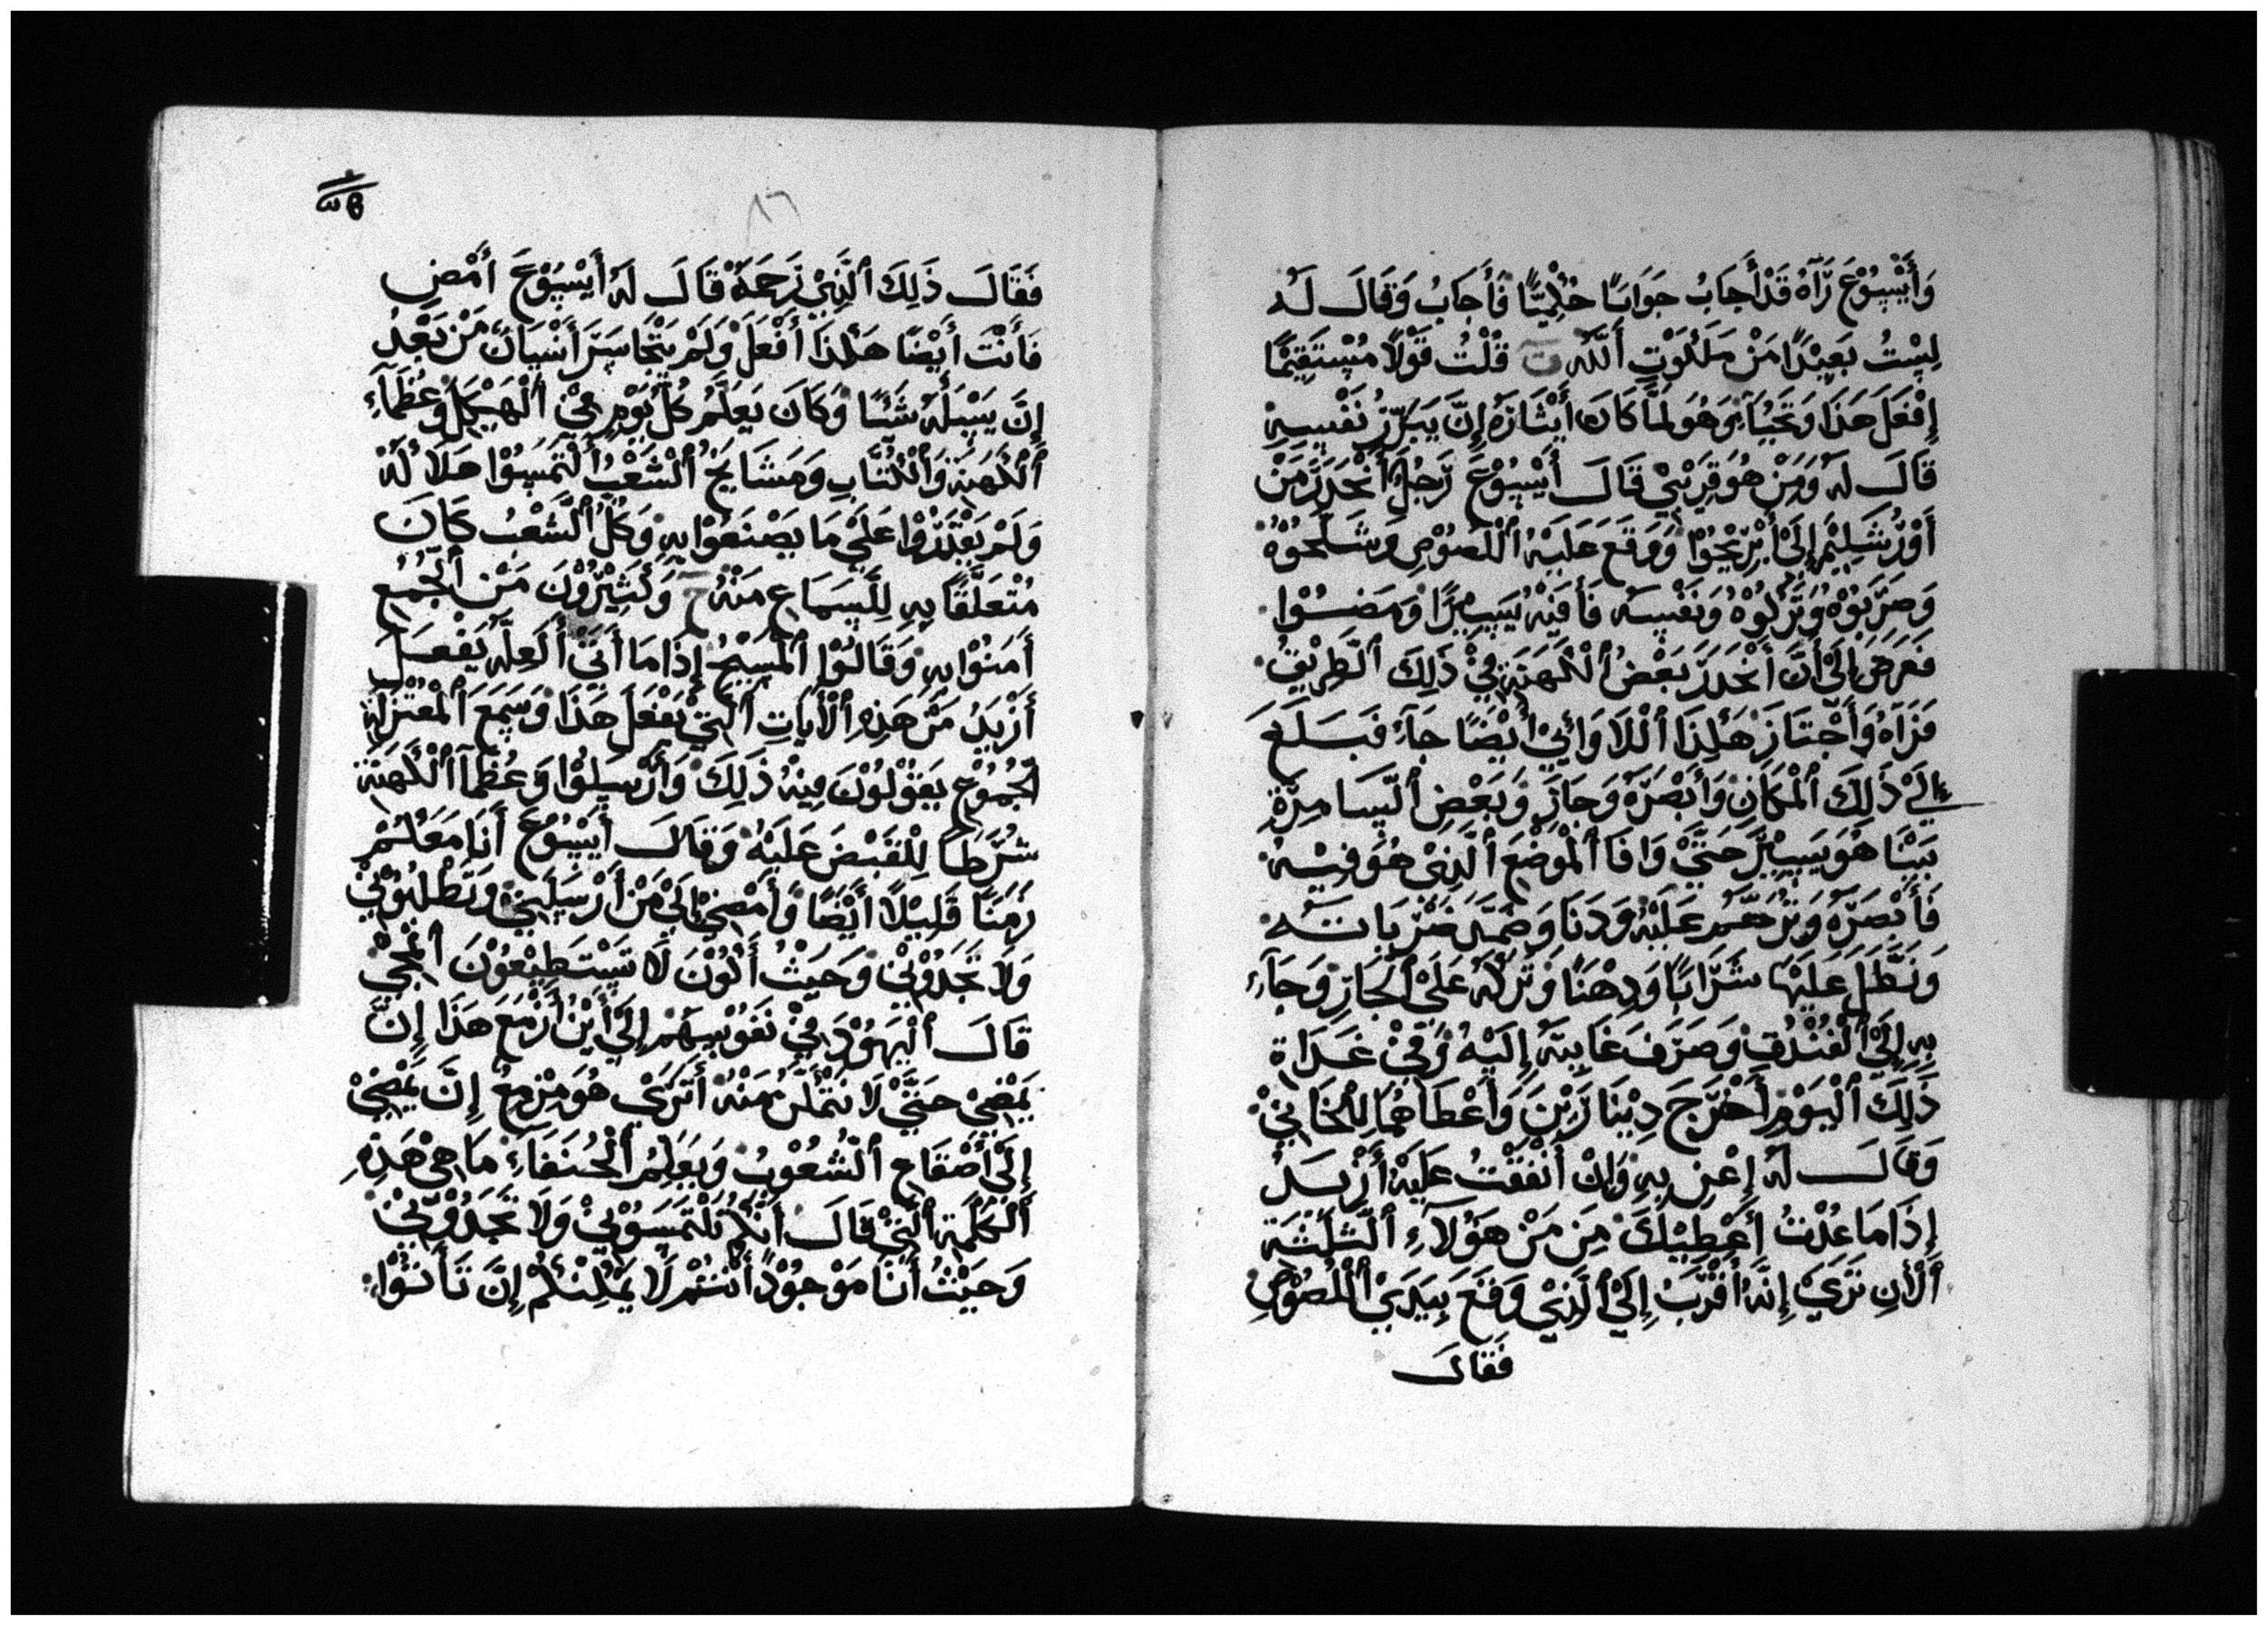 وَأَيْسُوْعَ رَآهُ قَدْ أَجَابُ جَوَابًا حُكْمِيًّا فَأَجَابُ وَقَالَ لَهُ
لِسْتُ بَعِيْدًا مَنْ مَلَكُوْتِ أَللّٰهِ قُلْتُ قَوْلًا مُسْتَقِيْمًا
إِفْعَلَ هَذَا وَتَحْيَا وَهُوَ لَمَّا كَانَ أَيْثَارَهُ إِنَّ يَبَرِّرُ نَفْسِهِ
قَالَ لَهُ وَمَنْ هُوَ قِرَيْبِيْ قَالَ أَيْسُوْعَ رَجُلٌ أَنْحَدَرَ مَنْ
أَوْرُشَلِيْمَ إِلَىْ أَيْرِيْحُوْا وَوَقَعَ عَلَيْهُ أللّصُوْصِ وَشَلَّحُوْهُ
وَضَرَّبُوْهُ وَتَرَكُوْهُ وَنَفْسِهِ فَأَفِيَهُ يَسِيْرًا وَمَضَوْا
فَعَرَضَ إِلَىْ أَنَّ أَنْحَدَرَ بَعْضُ ألْكَهَنَةِ فِيْ ذَلِكَ ألطِّرِيْقُ
فَرَآهُ وَأَجْتَازَ هَكَذَا أللَّاوَائِيْ أَيْضًا جَآءَ فَبَلَغَ
إِلَىْ ذَلِكَ ألْمَكَانِ وَأَبْصَرَهُ وَجَازَ وَبَعْضِ ألسَّامِرَّةِ
بَيْنَا هُوَ يَسِيْرَ حَتَّىْ وَافَا ألْمَوْضَعَ ألَّذِيْ هُوَ فِيْهُ
فَأَبْصَرَهُ وَتَرَحَّمَ عَلَيْهُ وَدَنَا وَضَمَّدَ ضَرْبَاتَهُ
وَنَطَلَ عَلَيْهَا شَرَابًا وَدِهْنًا وَتَرَكَهُ عَلَىْ ألْحِمَارِ وَجَآءَ
بِهِ إِلَىْ ألْفُنْدُقِ وَصَرَفَ عَنَايَتَهُ إِلَيْهُ وَفِيْ غَدَاةِ
ذَلِكَ ألْيَوْمِ أَخْرَجَ دِيْنَارَيْنَ وَأَعْطَاهُمَا لِلْخَانِيْ
وَقَالَ لَهُ إِعْنِ بِهِ وَإِنْ أَنْفَقْتُ عَلَيْهُ أَزْيَدُ
إِذَا مَا عُدْتُ أَعْطِيْكَ مِنَ مَنْ هَؤُلَآءِ ألثَّلَثَةِ
ألْأَنِ تَرَىْ إِنَّهُ أَقْرَبُ إِلَىْ ألَّذِيْ وَقَعَ بِيَدَيْ أللُّصُوْصِ
فَقَالَ
فَقَالَ ذَلِكَ ألَّذِيْ رَحَمَهُ قَالَ لَهُ أَيْسُوْعَ أَمْضِ
فَأَنْتَ أَيْضًا هَكَذَا أَفْعَلَ وَلَمْ يَتْجَاسَرَ أَنْسَانٌ مَنْ بَعْدُ
إِنَّ يَسْأَلَهُ شَئًا وَكَانَ يَعَلِّمُ كُلَّ يَوْمِ فِيْ ألْهَيْكَلِ وَعُظَمَآءِ
ألْكَهَنَةِ وَألْكُتَّابِ وَمَشَايِخُ ألْشَعْبُ ألْتَمَسُوْا هَلَاكُهُ
وَلَمْ يَقْتَدِرُوْا عَلَىْ مَا يَصْنَعُوْا بِهِ وَكُلُّ ألشَّعْبُ كَانَ
مُتْعَلَّقًا بِهِ لِلسَّمَاعِ مَنْهُ وَكَثِيْرُوْنَ مَنْ ألْجُمُعِ
أَمَنُوْا بِهِ وَقَالُوْا ألْمَسِيْحُ إِذَا مَا أَتَىْ أَلَعِلَّهُ يَفْعَلُ
أَزْيَدُ مَنْ هَذِهِ ألْأَيَاتِ ألَّتِيْ يَفْعَلَ هَذَا وَسَمِعَ ألْمُعْتَزِلَةِ
ألْجُمُوْعِ يَقُوْلُوْنَ فِيْهُ ذَلِكَ وَأَرْسَلُوْا وَعُظَمَآ ألْكَهَنَةِ
شُرَّطًا لِلْقَبْضَ عَلَيْهُ وَقَالَ أَيْسُوْعَ أَنَا مَعَكُمْ
زَمَنًا قَلِيْلًا أَيْضًا وَأَمْضِيْ إِلَىْ مَنْ أَرْسَلَنِيْ وَتَطْلُبُوْنِيْ
وَلَا تَجَدُوْنِيْ وَحَيْثُ أَكُوْنَ لَا تَسْتَطِيْعُوْنَ ألْمَجِيْ
قَالَ ألْيَهُوْدَ فِيْ نَفُوْسِهِمْ إِلَىْ أَيْنُ أَزْمَعَ هَذَا إِنَّ
يَمْضِيْ حَتَّىْ لَا نَتْمَكَّنُ مَنْهُ أَتَرَىْ هُوَ مِزْمِعٌ إِنَّ يَمْضِيْ
إِلَىْ أَصْقَاعِ ألْشُعُوْبُ وَيَعَلِّمُ ألْحُنَفَاءَ مَا هِيْ هَذِهِ
ألْكَلِمَةِ ألَّتِيْ قَالَ أَنَّكُمْ تَلْتَمَسُوْنِيْ وَلَا تَجَدُوْنِيْ
وَحَيْثُ أَنَا مَوْجُوْدًا أَنْتُمْ لَا يَمْكِنْكُمْ إِنَّ تَأَتُوْا